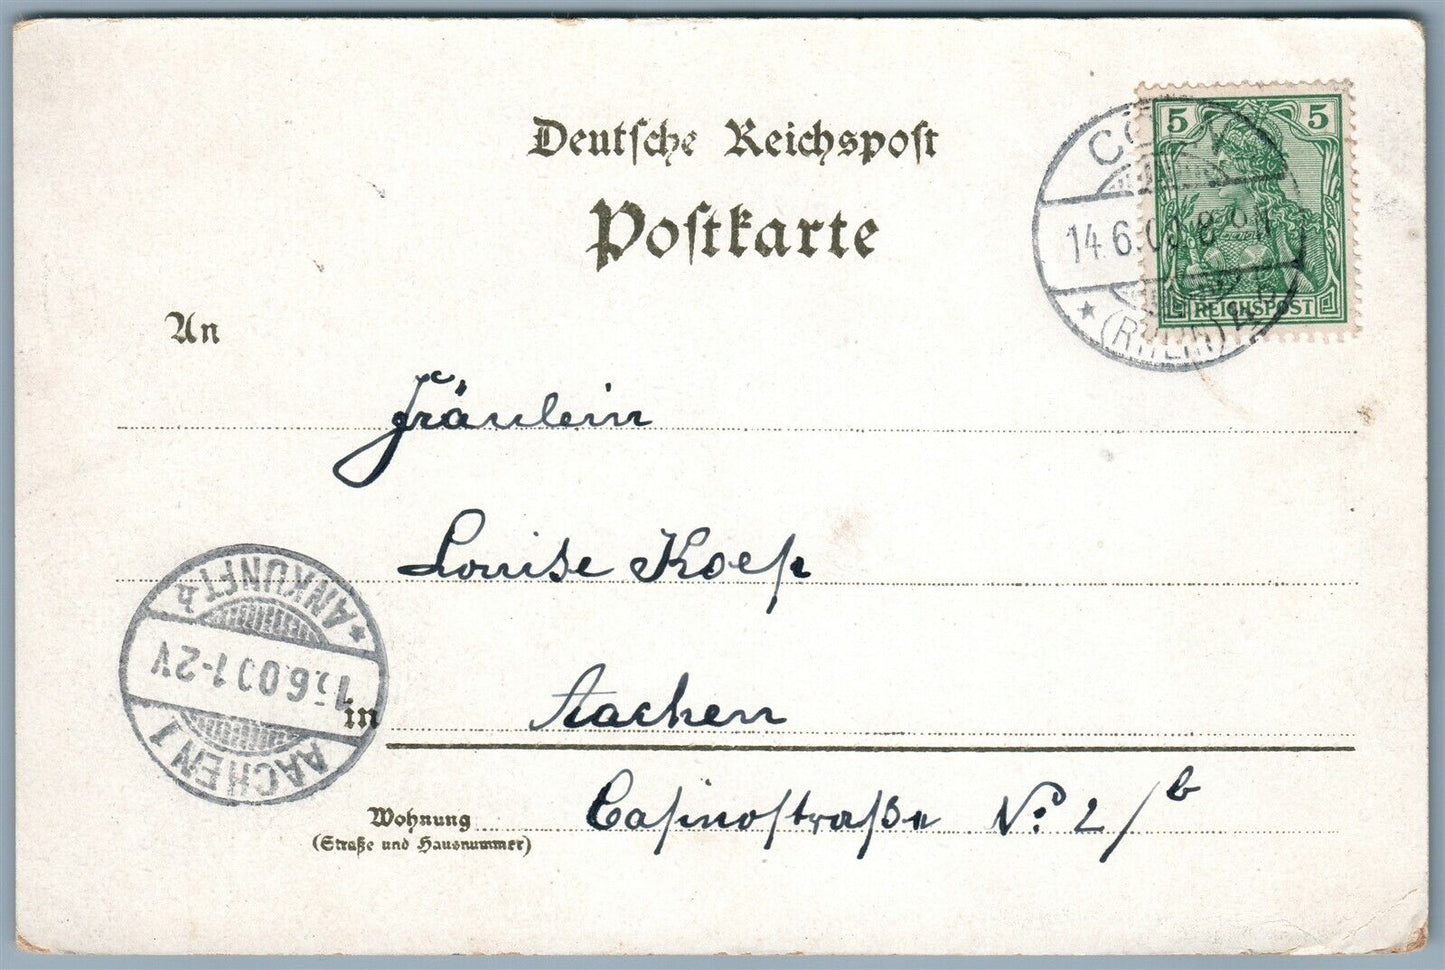 Deutsche Reichspost
Postkarte
5 5
REICHSPOST
14.6.00 8-9N
(RHEIN)
An
Fräulein
Louise Koep
*ANKUNFT b
15.6.00 1-2V
AACHEN 1
in Aachen
Wohnung Casinostraße No. 2/b
(Straße und Hausnummer)